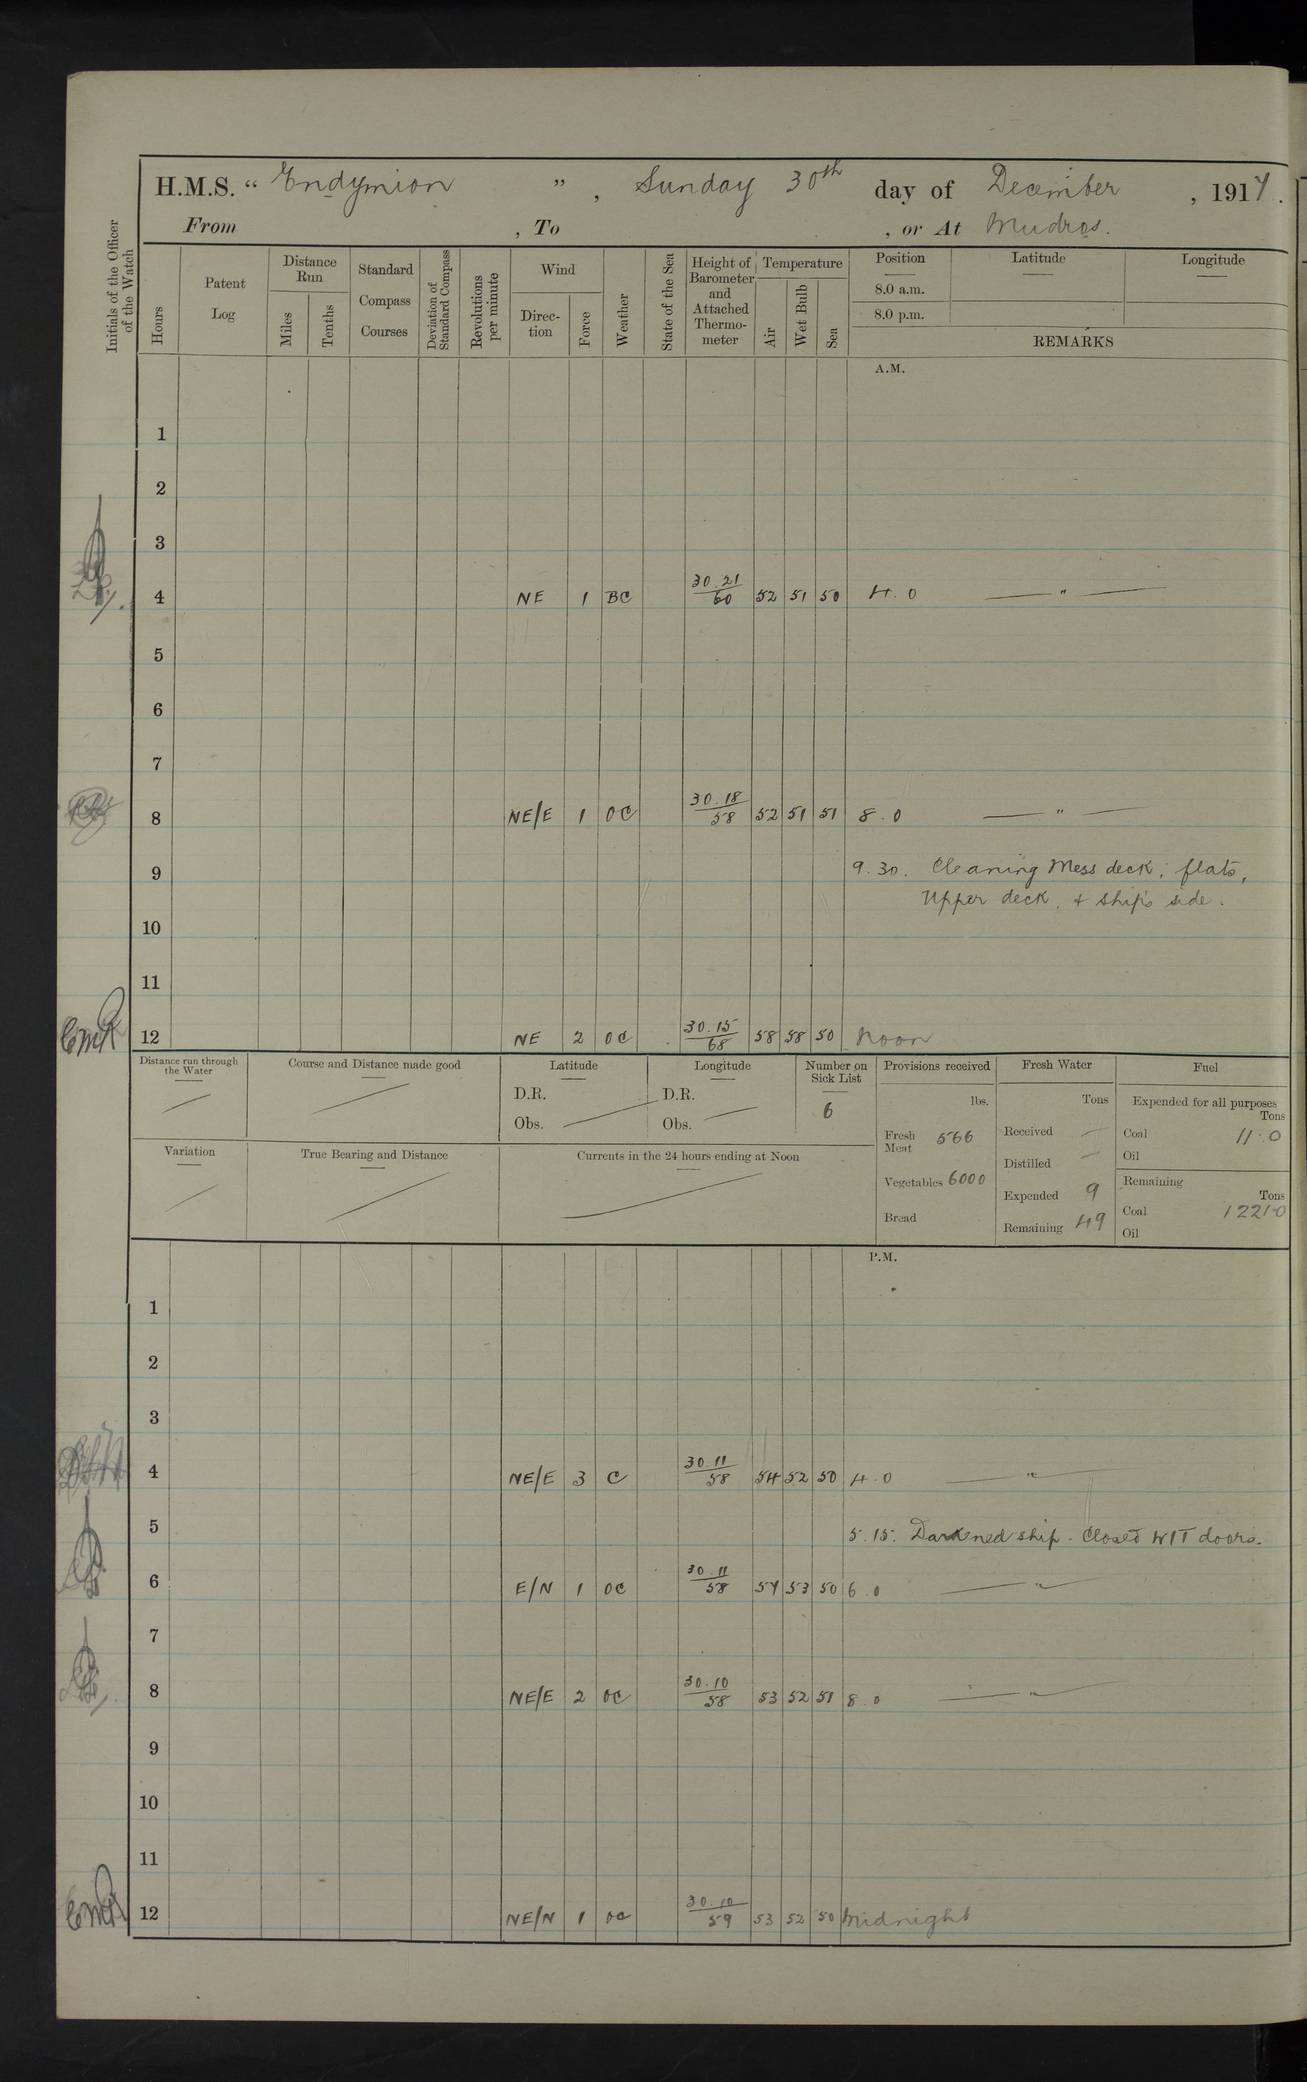 H.M.S. “ Endymion ” , Sunday 30th day of December , 1917.
From , To , or At Mudros.
Initials of the Officer of the Watch
Hours
Patent Log
Distance Run
Miles
Tenths
Standard Compass Courses
Deviation of Standard Compass
Revolutions per minute
Wind
Direc-tion
Force
Weather
State of the Sea
Height of Barometer and Attached Thermo-meter
Temperature
Air
Wet Bulb
Sea
Position
Latitude
Longitude
8.0 a.m.
8.0 p.m.
REMARKS
A.M.
1
2
3
4 NE 1 BC 30.21/60 52 51 50 4.0 — " —
5
6
7
8 NE/E 1 OC 30.18/58 52 51 51 8.0 — " —
9 9.30. Cleaning Mess deck, flats,
Upper deck, & ship's side.
10
11
12 NE 2 OC 30.15/68 58 58 50 Noon
Distance run through the Water
Course and Distance made good
Latitude
D.R.
Obs.
Longitude
D.R.
Obs.
Number on Sick List
6
Provisions received
lbs.
Fresh Meat 566
Vegetables 6000
Bread
Fresh Water
Tons
Received —
Distilled —
Expended 9
Remaining 49
Fuel
Expended for all purposes
Tons
Coal 11.0
Oil
Remaining
Tons
Coal 1221.0
Oil
Variation
True Bearing and Distance
Currents in the 24 hours ending at Noon
P.M.
1
2
3
4 NE/E 3 C 30.11/58 54 52 50 4.0 — " —
5 5.15. Darkened ship. Closed W/T doors.
6 E/N 1 OC 30.11/58 54 53 50 6.0 — " —
7
8 NE/E 2 OC 30.10/58 53 52 51 8.0 — " —
9
10
11
12 NE/N 1 OC 30.10/59 53 52 50 Midnight